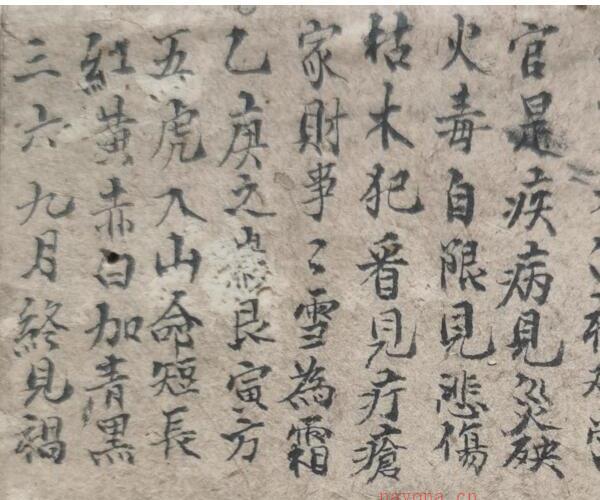 官是疾病見災殃
火毒自限見悲傷
枯木犯看見疔瘡
家財事〻雪為霜
乙庚之歲艮寅方
五虎入山命短長
紅黃赤白加青黑
三六九月終見禍